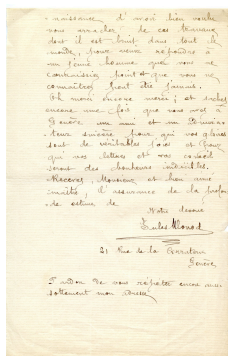 naissance d'avoir bien voulu
vous arracher de ces travaux
dont il est bruit dans tout le
monde, pour venir répondre à
un jeune homme que vous ne
connaissiez point et que vous ne
connaîtrez peut être jamais.
Oh merci encore merci, et sachez
encore une fois que vous avez à
Genève un ami et un admira-
teur sincère pour qui vos gloires
sont de véritables joies et pour
qui vos lettres et vos conseils
seront des bonheurs indicibles.
Recevez, Monsieur et bien aimé
maître, l'assurance de la profon-
de estime de
Votre dévoué
Jules
21 Rue de la
Genève
Pardon de vous répéter encore aussi
sottement mon adresse